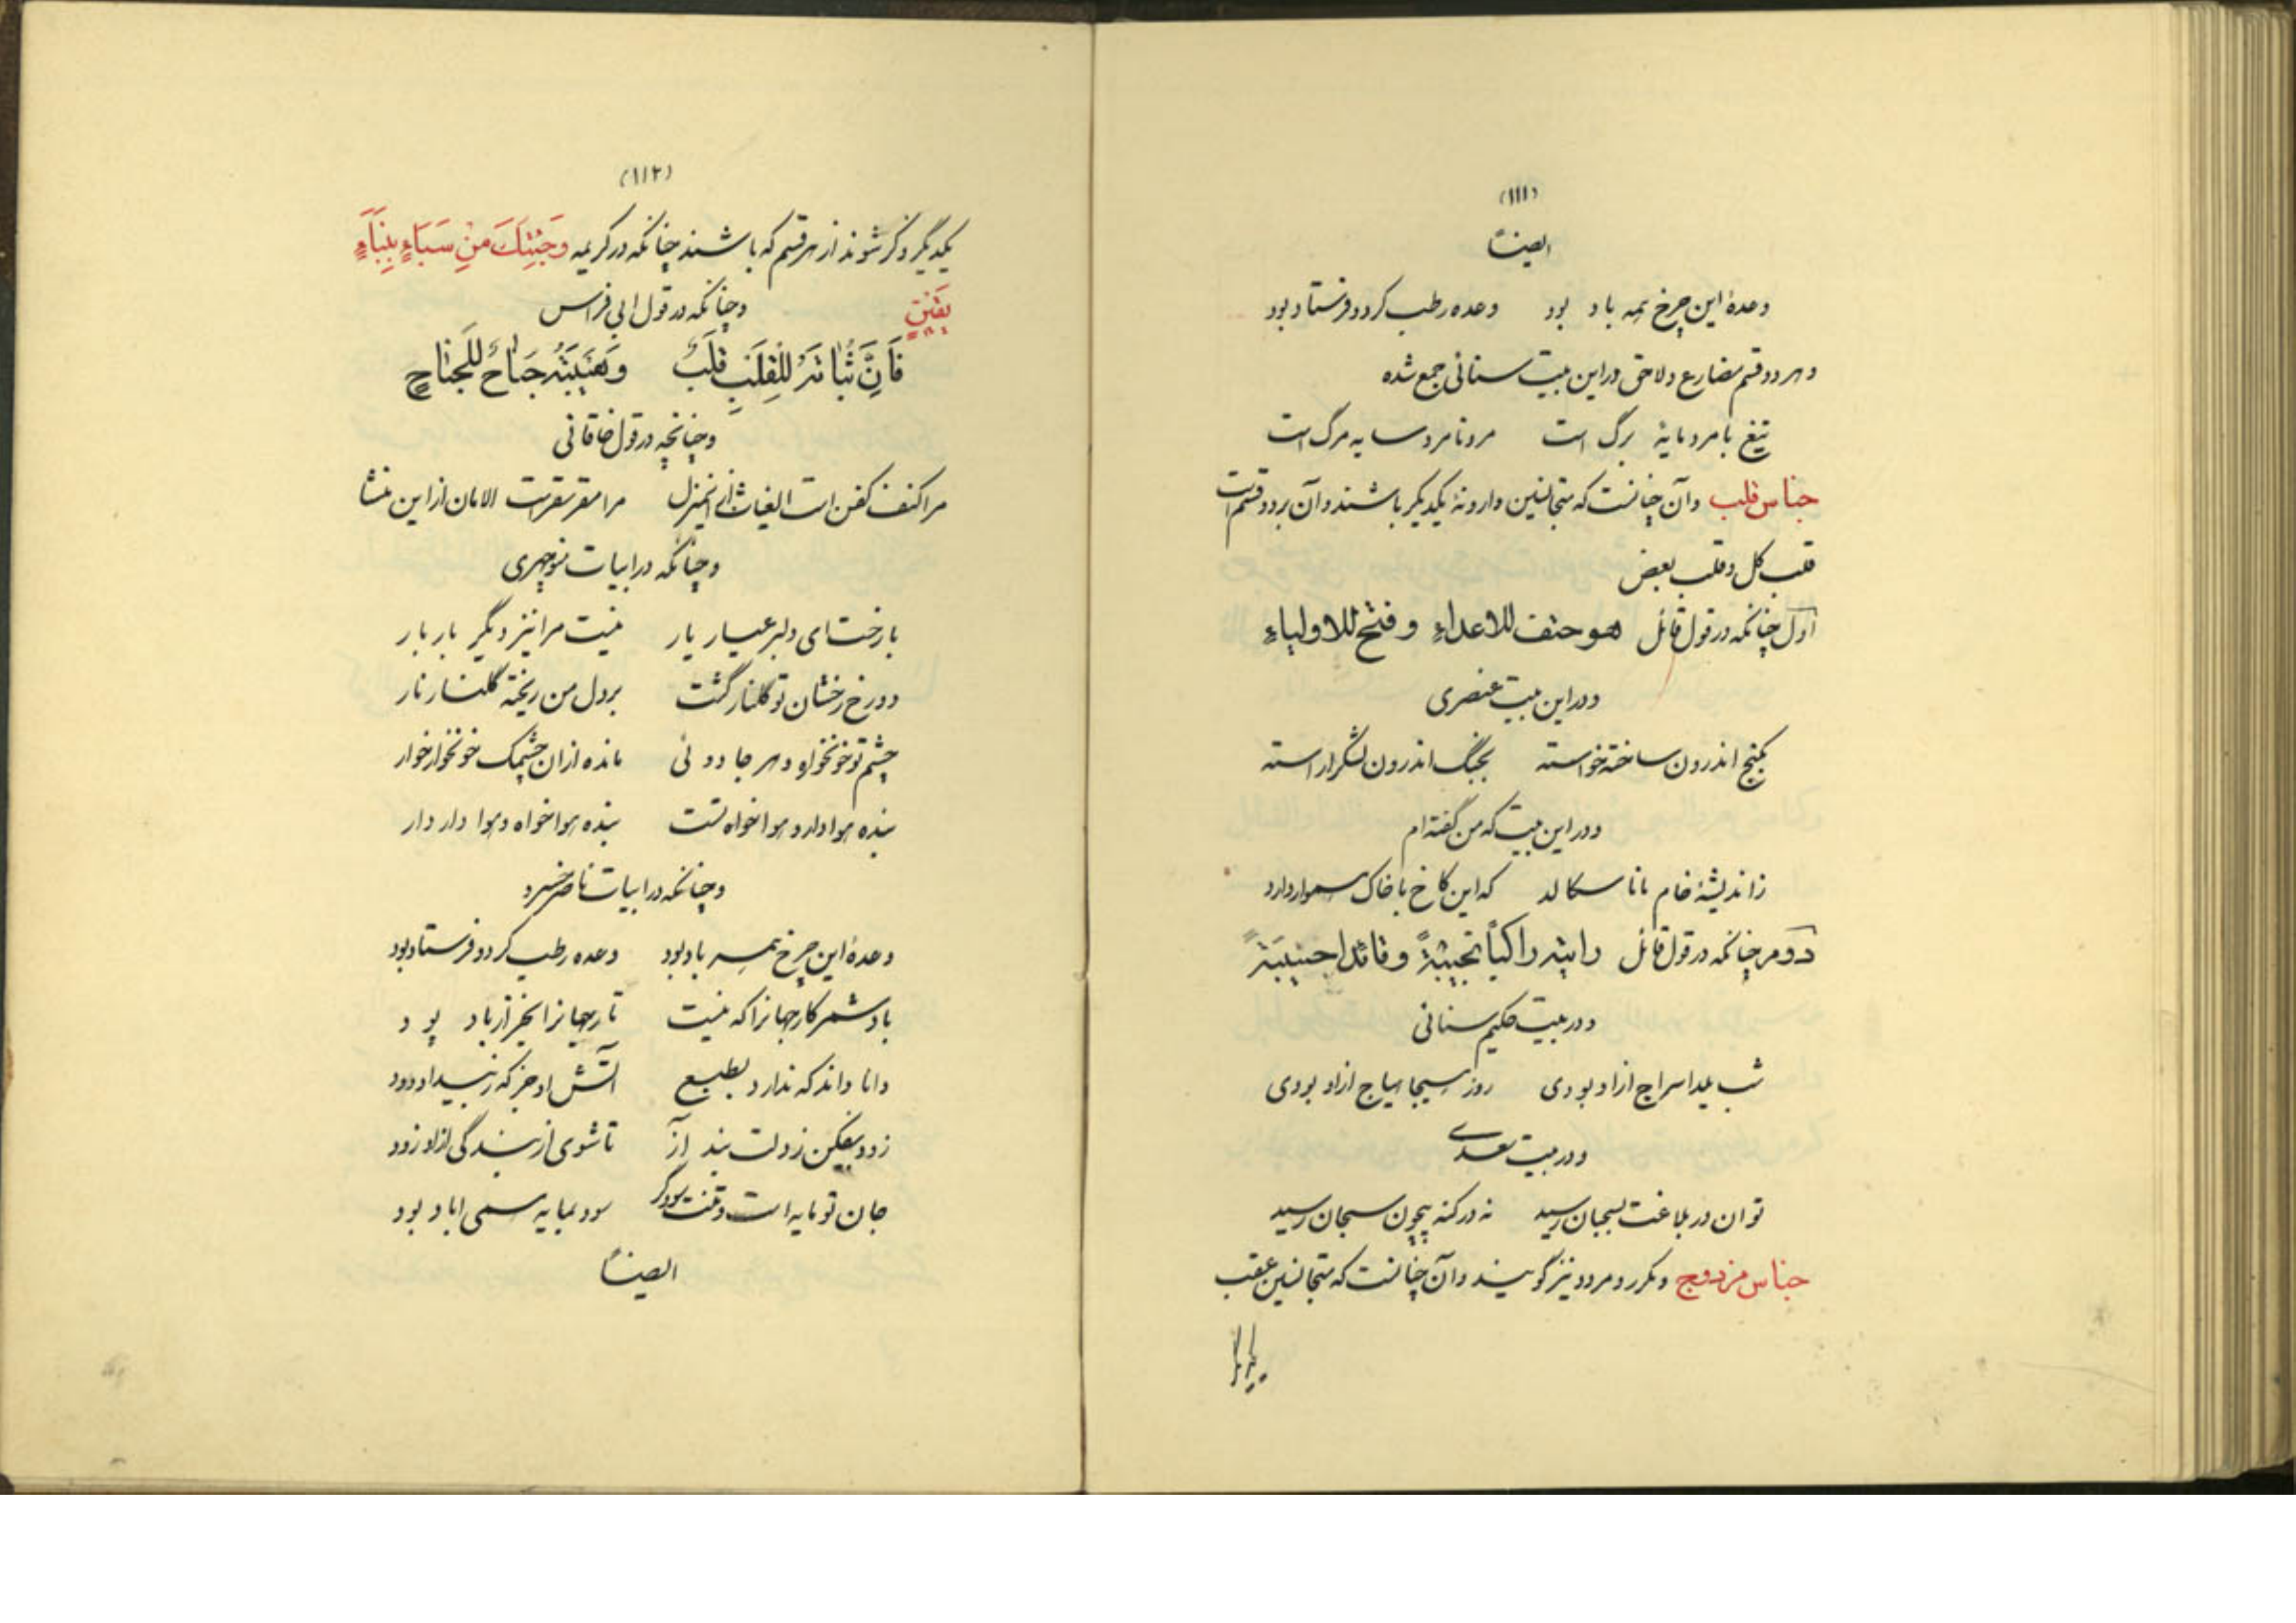 (۱۱۱)
ایضاً
وعدهٔ این چرخ همه باد بود وعده رطب کرد و فرستاد بود
و هر دو قسم مضارع و لاحق در این بیت سنائی جمع شده
تیغ با مرد مایهٔ برگ است مرد نامرد سایه مرگ است
جناس قلب و آن چنانست که متجانسین وارونهٔ یکدیگر باشند و آن بر دو قسم است
قلب کل و قلب بعض
اول چنانکه در قول قائل هو حتف للاعداءِ و فتح للاولیاءِ
و در این بیت عنصری
بگنج اندرون ساخته خواسته بجنگ اندرون لشکر اراسته
و در این بیت که من گفته ام
ز اندیشهٔ خام مانا سکالد که این کاخ با خاک هموار دارد
دوم چنانکه در قول قائل رایته راکباً نجیبةً و قائدا جنیبَةً
و در بیت حکیم سنائی
شب یلدا سراج ازاو بودی روز هیجا هیاج ازاو بودی
و در بیت سعدی
توان در بلاغت بسحبان رسید نه در کنه بیچون سبحان رسید
جناس مزدوج و مکرر و مردد نیز گویند و آن چنانست که متجانسین عقب
(۱۱۲)
یکدیگر ذکر شوند از هر قسم که باشند چنانکه در کریمه وَجِئتِکَ مِنْ سَبَاءٍ بِنِبَاءٍ
یَقینٍ وچنانکه در قول ابی فراس
و چنانچه در قول خاقانی
مرا کنف کفن است الغیاث از این منزل مرا مقر سقر است الامان از این منشا
وچنانکه در ابیات منوچهری
بار خت ای دلبر عیار یار نیست مرا نیز دیگر بار بار
دو رخ رخشان تو گلنار گشت بر دل من ریخته گلنار نار
چشم تو خونخواه و هر جادوئی مانده ازان چشمک خونخوار خوار
بنده هوادار و هواخواه تست بنده هواخواه و هوا دار دار
وچنانکه در ابیات ناصر خسرو
وعدهٔ این چرخ همه باد بود وعده رطب کرد و فرستاد بود
باد شمر کار جهانرا که نیست تار جهانرا بجز از باد پو د
دانا داند که ندارد بطبع آتش او جز که ز بیداد دود
زود بیفکن ز دلت بند از تا شوی از بندگی ازاد زود
جان تو مایه است و تنت سودگر سود بمایه سمی اباد بود
ایضاً